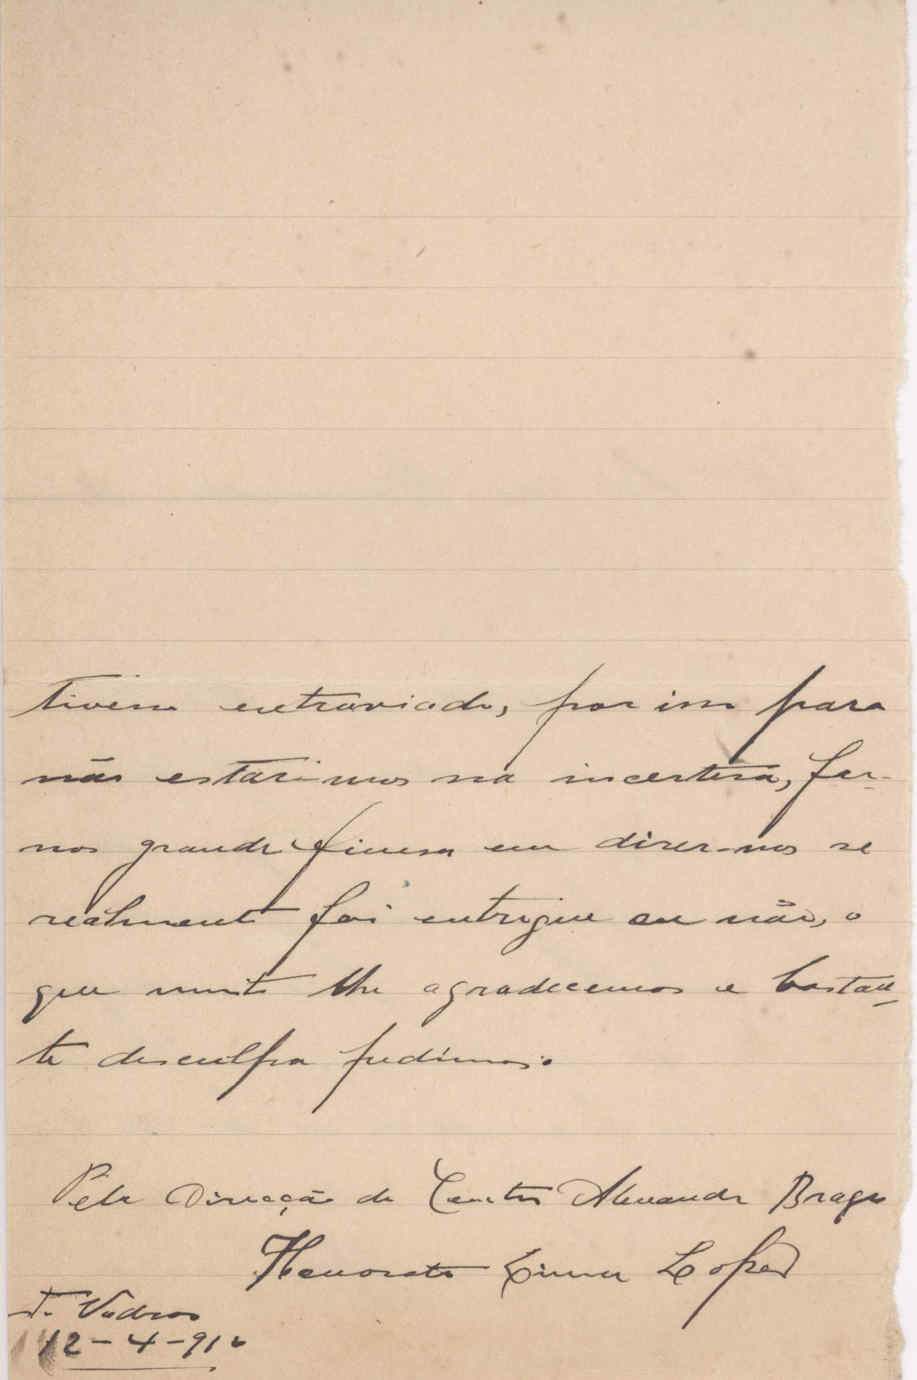 tivesse extraviado, por isso para
não estarimos na incertesa, fas-
nos grande finesa em dizer-nos se
realmente foi entrigue ou não, o
que muito lhe agradecemos e bastan-
te desculpa pedimos.
Pela Direcção do Centro Alexandre Braga
Honorato Lopes
T. Vedras
12-4-91